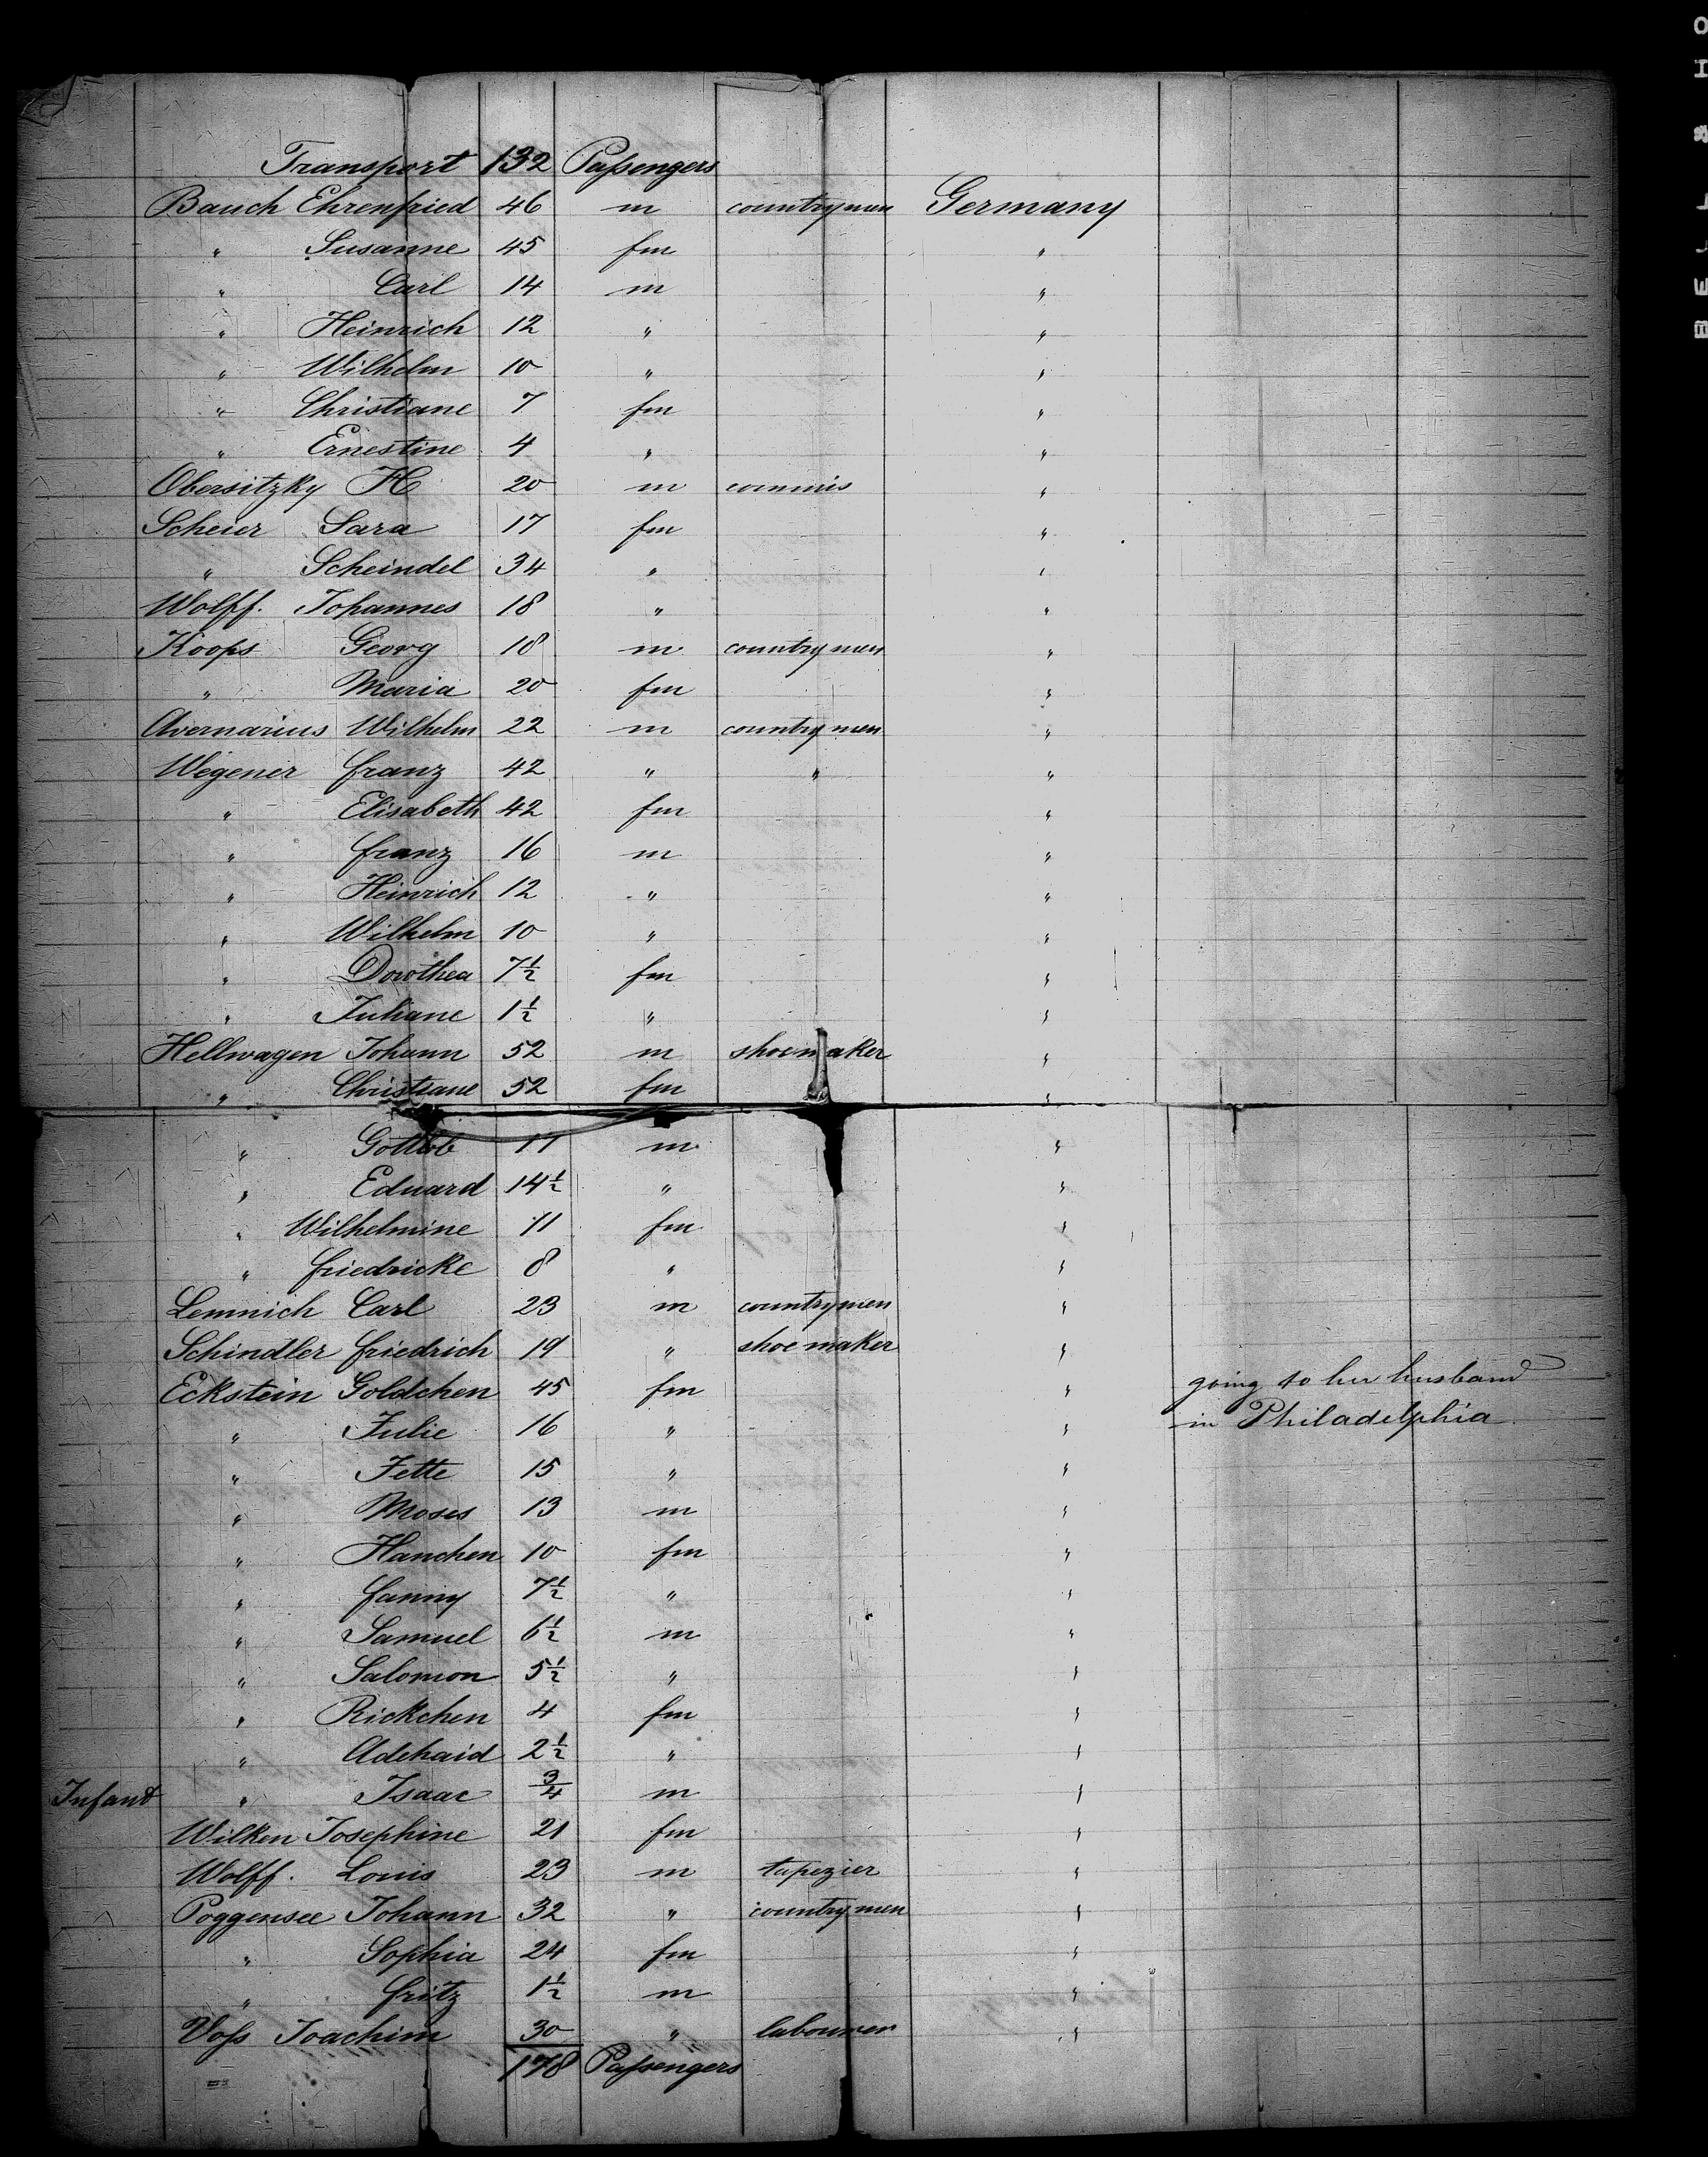 Transport 132 Passengers
Bauch Ehrenfried 46 m countrymen Germany
" Susanne 45 fm "
" Carl 14 m "
" Heinrich 12 " "
" Wilhelm 10 " "
" Christiane 7 fm "
" Ernestine 4 " "
Obersitzky H 20 m commis "
Scheier Sara 17 fm "
" Scheindel 34 " "
Wolff. Johannes 18 " "
Koops Georg 18 m countrymen "
" Maria 20 fm "
Avernarius Wilhelm 22 m countrymen "
Wegener Franz 42 " " "
" Elisabeth 42 fm "
" Franz 16 m "
" Heinrich 12 " "
" Wilhelm 10 " "
" Dorothea 7½ fm "
" Juliane 1½ " "
Hellwagen Johann 52 m shoemaker "
" Christiane 52 fm "
" Gottlob 17 m "
" Eduard 14½ " "
" Wilhelmine 11 fm "
" Friedricke 8 " "
Lemnich Carl 23 m countrymen "
Schindler Friedrich 19 " shoemaker "
Eckstein Goldchen 45 fm " going to her husband
" Julie 16 " " in Philadelphia
" Jette 15 " "
" Moses 13 m "
" Hanchen 10 fm "
" Fanny 7½ " "
" Samuel 6½ m "
" Salomon 5½ " "
" Rickchen 4 fm "
" Adehaid 2½ " "
Infant " Isaac ¾ m "
Wilken Josephine 21 fm "
Wolff. Louis 23 m tapezier "
Poggensee Johann 32 " countrymen "
" Sophia 24 fm "
" Fritz 1½ m "
Voss Joachim 30 " labourer "
178 Passengers